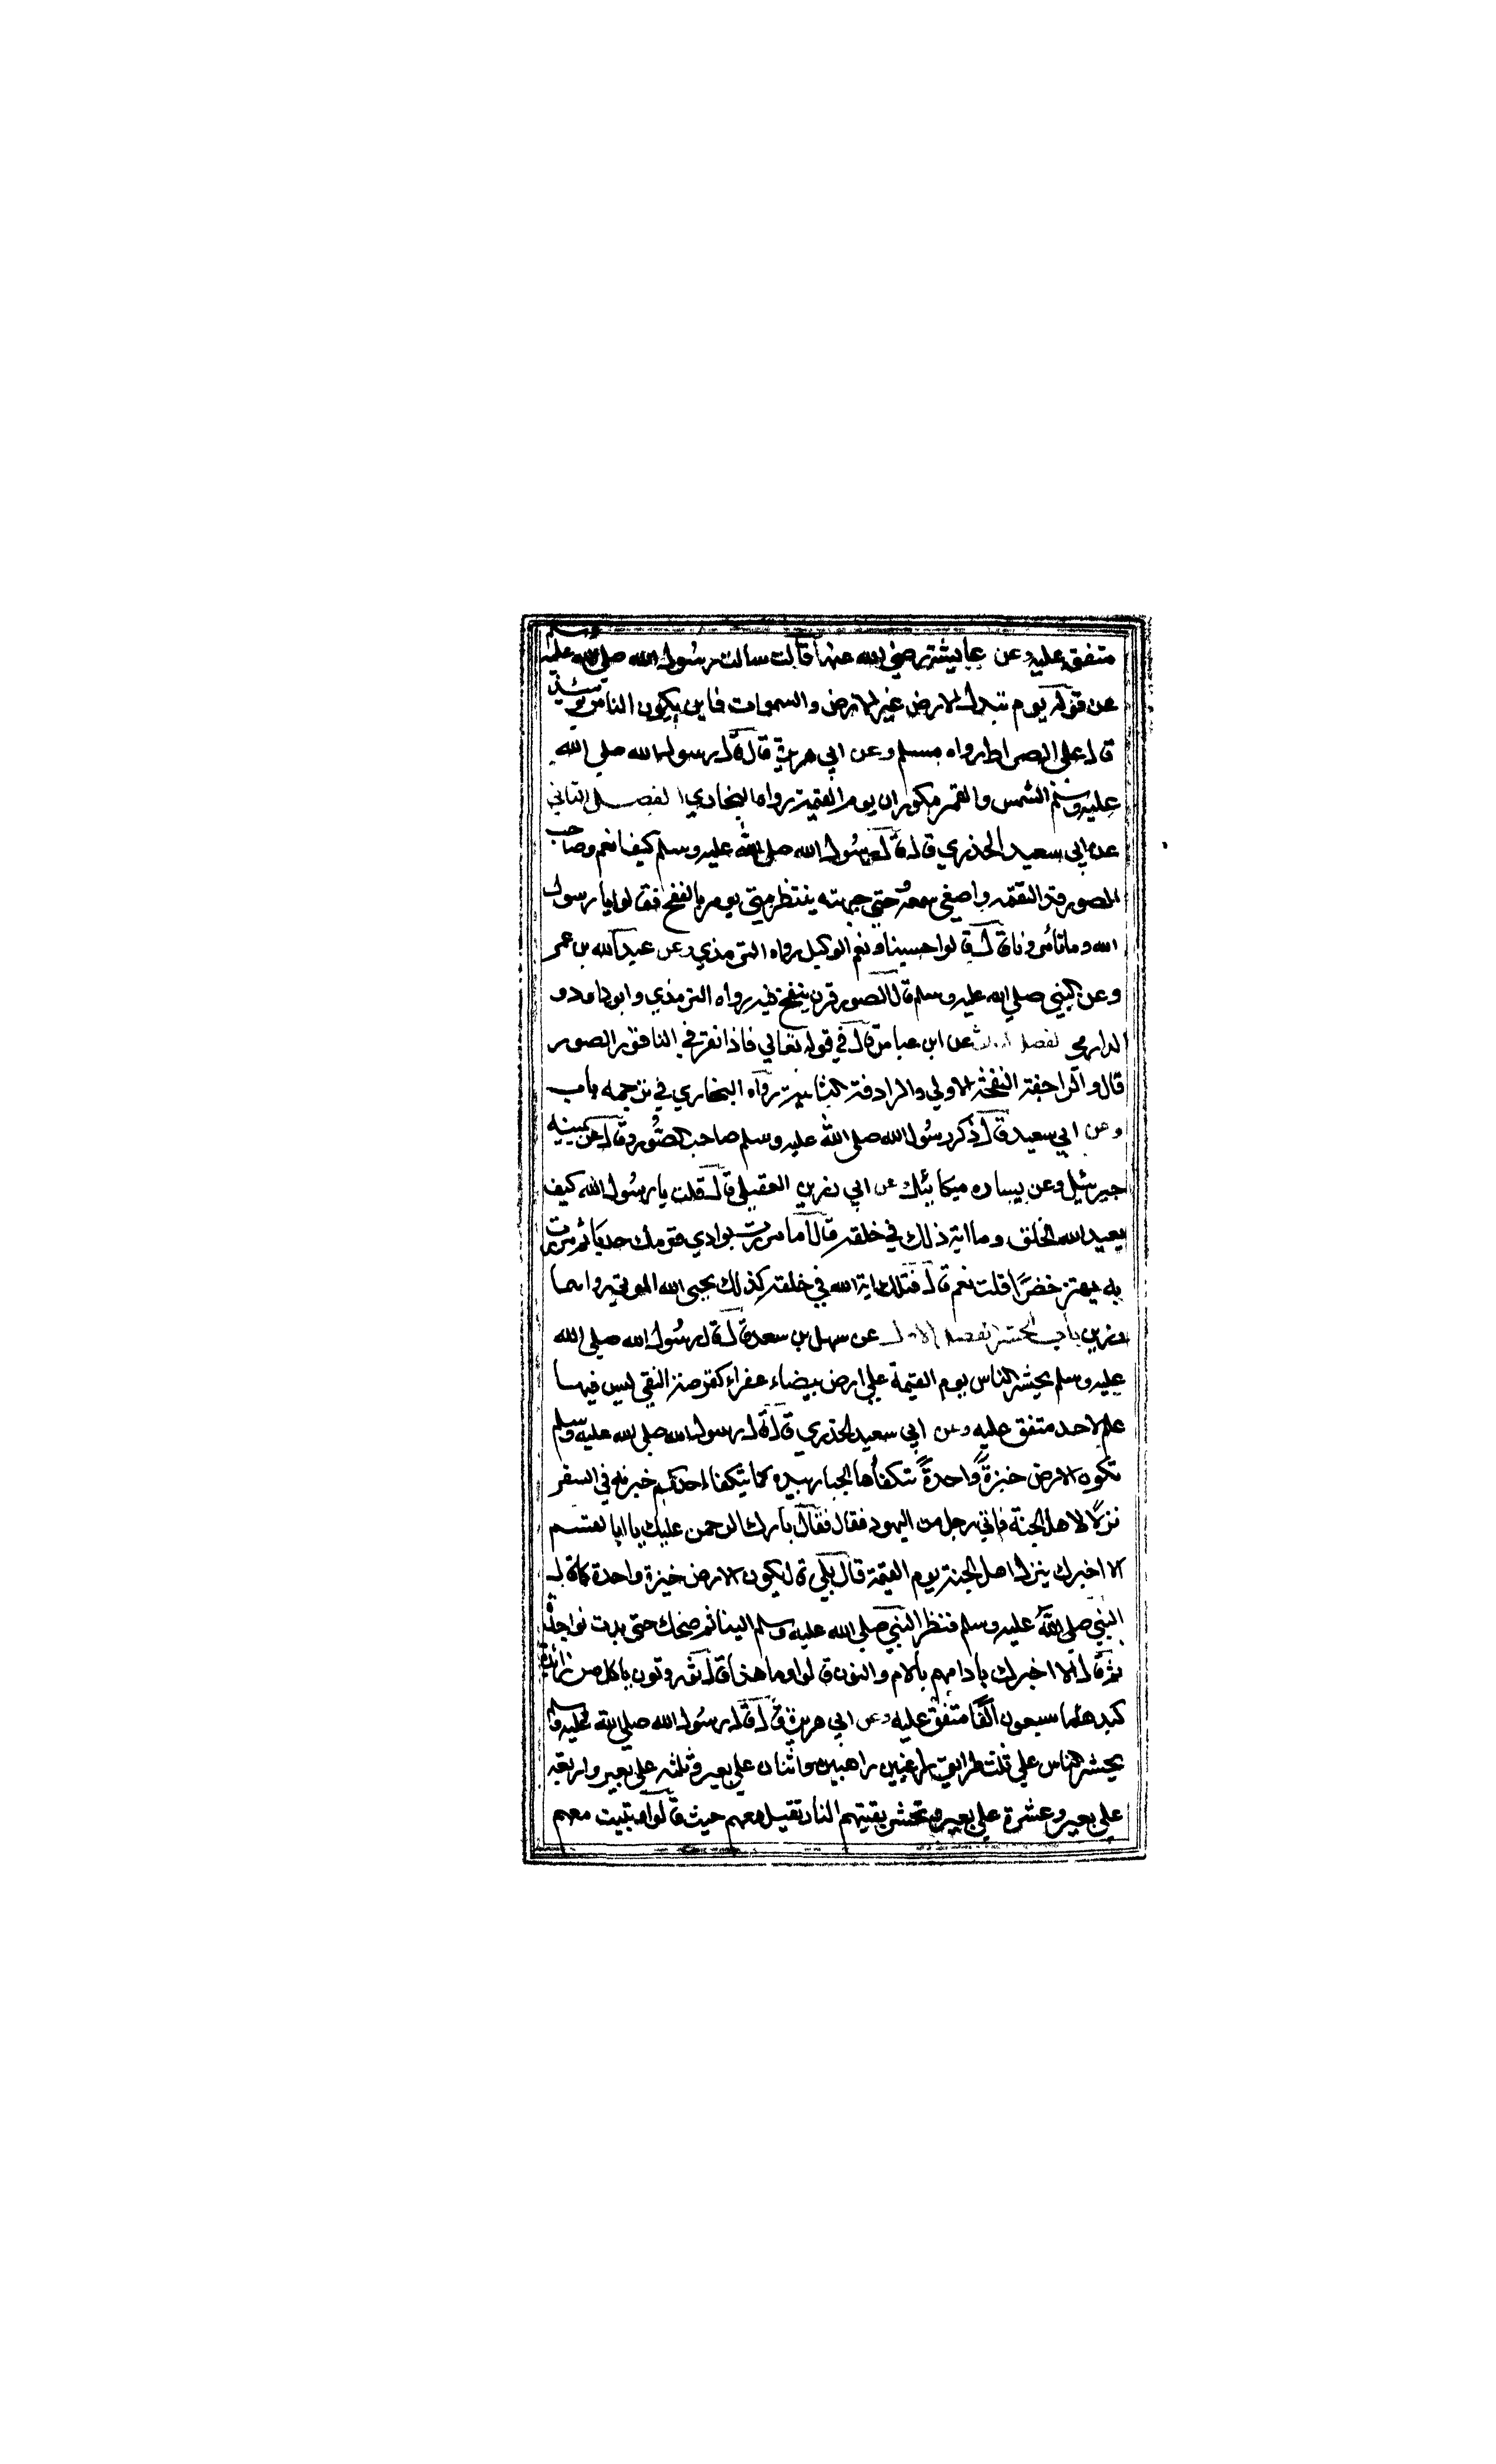 متفق عليه وعن عايشة رضي الله عنها قالت سالت رسول الله صلى الله عليه وسلم
عن قوله يوم تبدل الارض غير الارض والسموات فاين يكون الناس يومئذ
قال على الصراط رواه مسلم وعن ابي هريرة قال قال رسول الله صلي الله
عليه وسلم الشمس والقمر مكوران يوم القيمة رواه البخاري الفصل الثاني
عن ابي سعيد الخدري قال قال رسول الله صلى الله عليه وسلم كيف انعم وصاحب
الصور قد التقمه واصغى سمعه وحتى جبهته ينتظر متى يومر بالنفخ فقالوا يا رسول
الله وما تأمرونا قال قالوا حسبنا ونعم الوكيل رواه الترمذي وعن عبد الله بن عمر
وعن النبي صلي الله عليه وسلم قال الصور قرن ينفخ فيه رواه الترمذي وابو داود و
الدارمي لفصل الثالث عن ابن عباس قال في قوله تعالي فاذا نقر في الناقور الصور
قال والراجفة النفخة الاولي والرادفة الثانية رواه البخاري في ترجمه باب
وعن ابي سعيد قال ذكر رسول الله صلى الله عليه وسلم صاحب الصور وقال عن يمينه
جبرئيل وعن يساره ميكائيل عن ابي رزين العقيلي قال قلت يا رسول الله كيف
يعيد الله الخلق وما اية ذلك في خلقه قال أما مررت بوادي قومك جدبا ثم مررت
به يهتز خضرًا قلت نعم قال فتلك اية الله في خلقه كذلك يحيى الله الموتي رواهما
رزين باب الحشر الفصل الاول عن سهل بن سعد قال قال رسول الله صلي الله
عليه وسلم يحشر الناس يوم القيمة علي ارض بيضاء عفراء كقرصة النقي ليس فيها
علم لاحد متفق عليه وعن ابي سعيد الخدري قال قال رسول الله صلى الله عليه وسلم
تكون الارض خبزةً واحدةً تتكفأها الجبار بيده كما يتكفاء احدكم خبزته في السفر
نزلًا لاهل الجنة فاتي رجل من اليهود فقال فقال بارك الرحمن عليك يا ابا لقسم
الا اخبرك بنزل اهل الجنة يوم القيمة قال بلي قال يكون الارض خبزة واحدة كما قال
النبي صلى الله عليه وسلم فنظر النبي صلي الله عليه وسلم الينا ثم ضحك حتى بدت نواجذه
ثم قال الا اخبرك بادامهم بالام والنون قالوا وما هذا قال ثور ونون ياكل من زائدة
كبدهما سبعون الفًا متفق عليه وعن ابي هريرة قال قال رسول الله صلي الله عليه وسلم
يحشر الناس علي ثلث طرايق راغبين راهبين واثنان علي بعير وثلثه على بعير واربعة
علي بعير وعشرة علي بعير وتحشر بقيتهم النار تقيل معهم حيث قالوا وتبيت معهم